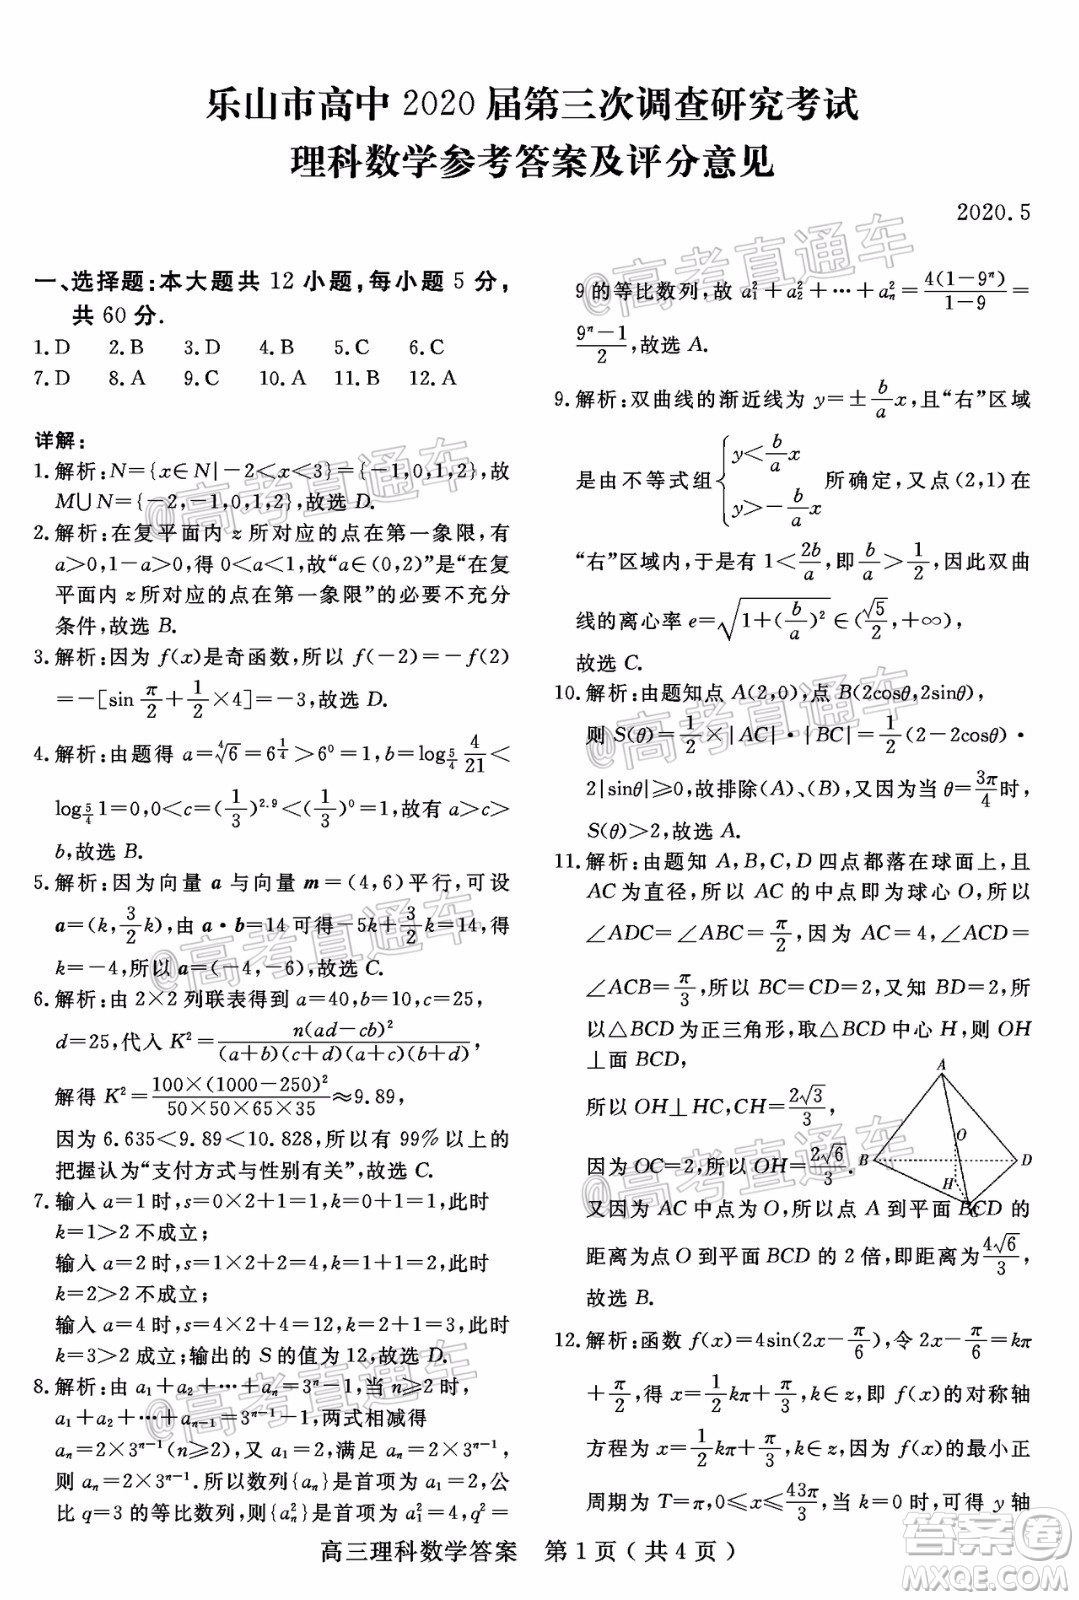 乐山市高中 2020 届第三次调查研究考试
理科数学参考答案及评分意见
2020.5
一、选择题:本大题共 12 小题,每小题 5 分,
共 60 分.
1.D 2.B 3.D 4.B 5.C 6.C
7.D 8.A 9.C 10.A 11.B 12.A
详解:
1.解析:N={x∈N|-2<x<3}={-1,0,1,2},故
M∪N={-2,-1,0,1,2},故选 D.
2.解析:在复平面内 z 所对应的点在第一象限,有
a>0,1-a>0,得 0<a<1,故“a∈(0,2)”是“在复
平面内 z 所对应的点在第一象限”的必要不充分
条件,故选 B.
3.解析:因为 f(x)是奇函数,所以 f(-2)=-f(2)
=-[sin π/2+1/2×4]=-3,故选 D.
4.解析:由题得 a=∜6=6^(1/4)>6⁰=1,b=log_(5/4) 4/21<
log_(5/4) 1=0,0<c=(1/3)^2.9<(1/3)⁰=1,故有 a>c>
b,故选 B.
5.解析:因为向量 a 与向量 m=(4,6)平行,可设
a=(k,3/2 k),由 a·b=14 可得-5k+3/2 k=14,得
k=-4,所以 a=(-4,-6),故选 C.
6.解析:由 2×2 列联表得到 a=40,b=10,c=25,
d=25,代入 K²=n(ad-cb)²/((a+b)(c+d)(a+c)(b+d)),
解得 K²=100×(1000-250)²/(50×50×65×35)≈9.89,
因为 6.635<9.89<10.828,所以有 99% 以上的
把握认为“支付方式与性别有关”,故选 C.
7.输入 a=1 时,s=0×2+1=1,k=0+1=1,此时
k=1>2 不成立;
输入 a=2 时,s=1×2+2=4,k=1+1=2,此时
k=2>2 不成立;
输入 a=4 时,s=4×2+4=12,k=2+1=3,此时
k=3>2 成立;输出的 S 的值为 12,故选 D.
8.解析:由 a₁+a₂+…+aₙ=3ⁿ-1,当 n≥2 时,
a₁+a₂+…+aₙ₋₁=3ⁿ⁻¹-1,两式相减得
aₙ=2×3ⁿ⁻¹(n≥2),又 a₁=2,满足 aₙ=2×3ⁿ⁻¹,
则 aₙ=2×3ⁿ⁻¹.所以数列{aₙ}是首项为 a₁=2,公
比 q=3 的等比数列,则{aₙ²}是首项为 a₁²=4,q²=
9 的等比数列,故 a₁²+a₂²+…+aₙ²=4(1-9ⁿ)/(1-9)=
(9ⁿ-1)/2,故选 A.
9.解析:双曲线的渐近线为 y=±b/a x,且“右”区域
是由不等式组{y<b/a x
y>-b/a x 所确定,又点(2,1)在
“右”区域内,于是有 1<2b/a,即 b/a>1/2,因此双曲
线的离心率 e=√(1+(b/a)²)∈(√5/2,+∞),
故选 C.
10.解析:由题知点 A(2,0),点 B(2cosθ,2sinθ),
则 S(θ)=1/2×|AC|·|BC|=1/2(2-2cosθ)·
2|sinθ|≥0,故排除(A)、(B)、(D),又当 θ=3π/4时,
S(θ)>2,故选 A.
11.解析:由题知 A,B,C,D 四点都落在球面上,且
AC 为直径,所以 AC 的中点即为球心 O,所以
∠ADC=∠ABC=π/2,因为 AC=4,∠ACD=
∠ACB=π/3,所以 BC=CD=2,又知 BD=2,所
以△BCD 为正三角形,取△BCD 中心 H,则 OH
⊥面 BCD,
所以 OH⊥HC,CH=2√3/3,
因为 OC=2,所以 OH=2√6/3.
A
O
B
D
H
C
又因为 AC 中点为 O,所以点 A 到平面 BCD 的
距离为点 O 到平面 BCD 的 2 倍,即距离为4√6/3,
故选 B.
12.解析:函数 f(x)=4sin(2x-π/6),令 2x-π/6=kπ
+π/2,得 x=1/2 kπ+π/3,k∈z,即 f(x)的对称轴
方程为 x=1/2 kπ+π/3,k∈z,因为 f(x)的最小正
周期为 T=π,0≤x≤43π/3,当 k=0 时,可得 y 轴
高三理科数学答案 第 1 页(共 4 页)
@高考直通车
@高考直通车
@高考直通车
@高考直通车
@高考直通车
@高考直通车
@高考直通车
@高考直通车
答案卷
MXQE.COM